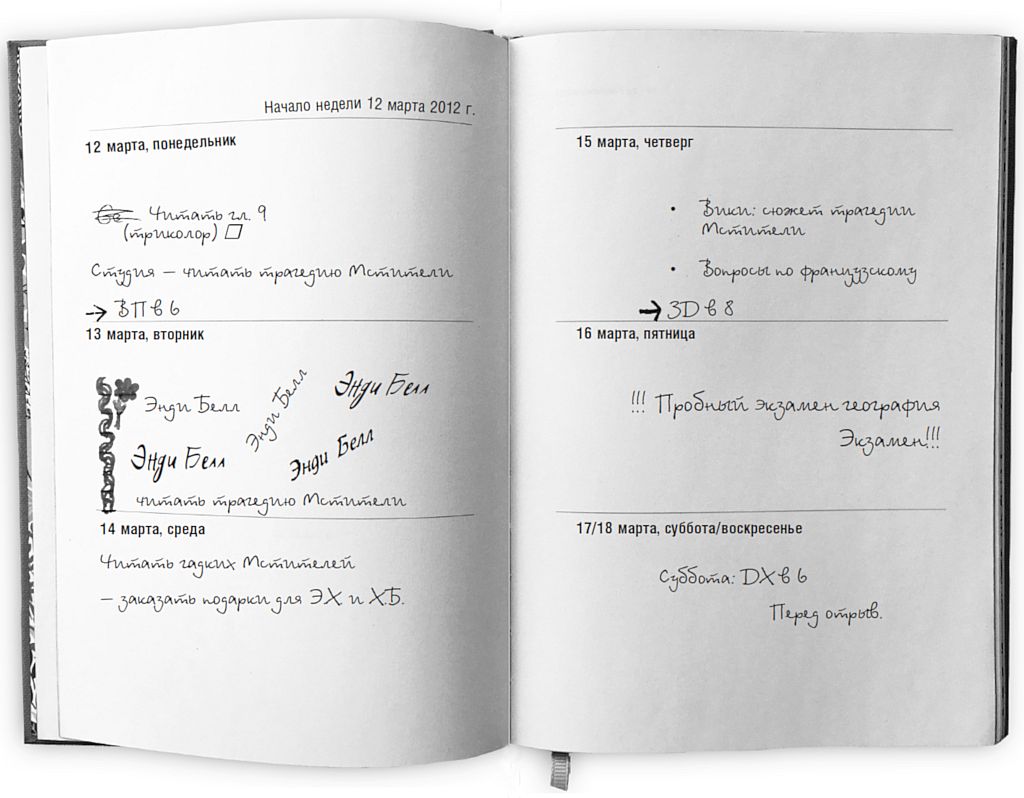 Начало недели 12 марта 2012 г.
12 марта, понедельник
Читать гл. 9
(триколор)
Студия — читать трагедию Мстители
→ ВП в 6
13 марта, вторник
Энди Белл
Энди Белл
Энди Белл
Энди Белл
Энди Белл
читать трагедию Мстители
14 марта, среда
Читать гадких Мстителей
— заказать подарки для ЭХ. и Х.Б.
15 марта, четверг
• Вики: сюжет трагедии
Мстители
• Вопросы по французскому
→ 3D в 8
16 марта, пятница
!!! Пробный экзамен география
Экзамен!!!
17/18 марта, суббота/воскресенье
Суббота: DX в 6
Перед отрыв.